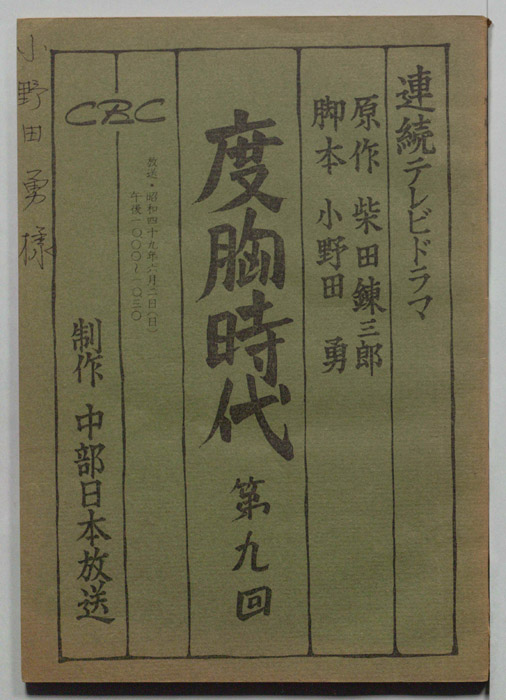 連続テレビドラマ
原作 柴田錬三郎
脚本 小野田 勇
度胸時代 第九回
放送・昭和四十九年六月二日(日)
午後一〇〇〇〜一〇三〇
CBC
制作 中部日本放送
小野田勇様